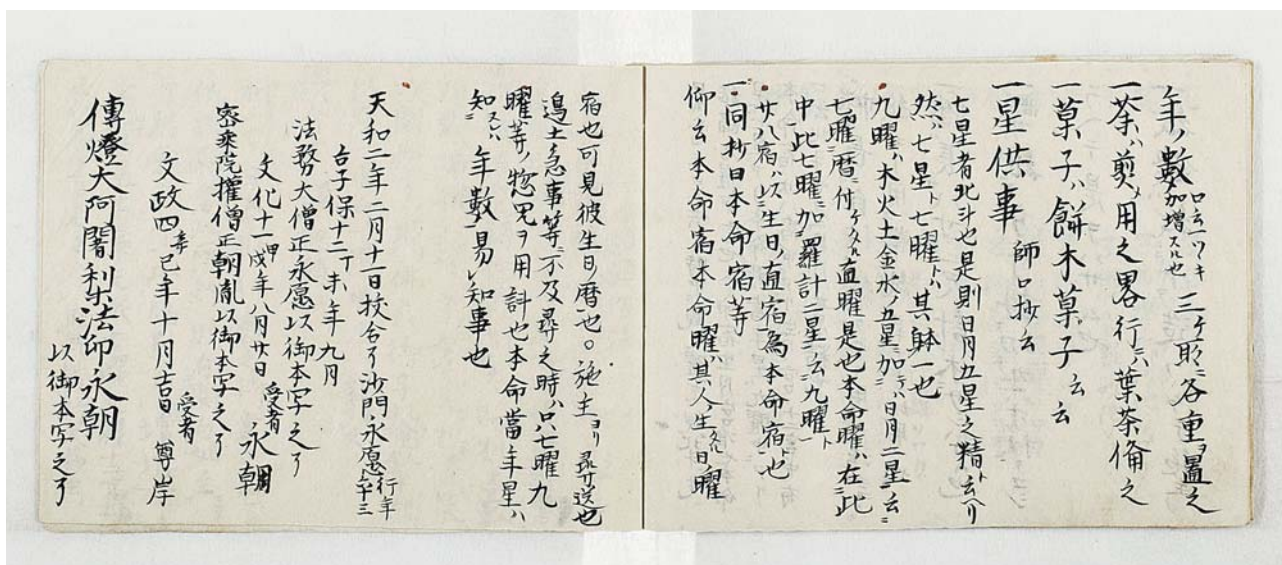 年ノ數 口云一ツヽキ加増スル也 三ケ所ニ各重ヲ置之
一茶ハ煎メ用之畧行ニハ葉茶備之
一菓子ハ餅木菓子云云
一星供事 師口抄云
七星者北斗也是則日月五星之精ト云ヘリ
然ハ七星ト七曜トハ其躰一也
九曜ハ木火土金水ノ五星ニ加ニテハ日月二星ヲ云ニ
七曜ニ暦ニ付ケタル直曜是也本命曜ハ在此
中此七曜ニ加羅計二星ヲ云九曜ト
廿八宿ハ以生日ノ直宿為本命宿ト也
一同抄曰本命宿等
仰云本命宿本命曜ハ其人ノ生ルヽ日ノ曜
宿也可見彼生日ノ暦也○施主ヨリ
邊土急事等ニ不及尋之時ハ只七曜九
曜等ノ惣咒ヲ用計也本命當年星ハ
知スレハ年數易知事也
天和二年二月十一日校合了沙門永愿行年
享保十二丁未年九月
法務大僧正永愿以御本写之了
文化十一甲戌年八月廿日 受者永朝
密乘院權僧正朝胤以御本写之了
文政四辛巳年十月吉日 受者尊岸
傳燈大阿闍梨法印永朝
以御本写之了